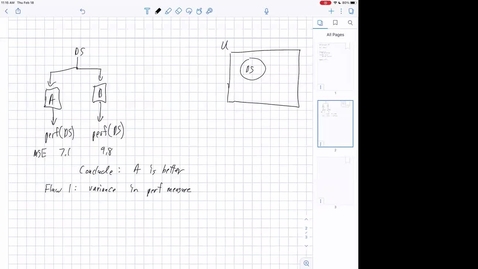 11:15 AM Thu Feb 18
All Pages
DS
U
DS
A
B
perf(DS) perf(DS)
MSE 7.1 9.8
Conclude: A is better
Flaw 1: variance in perf measure